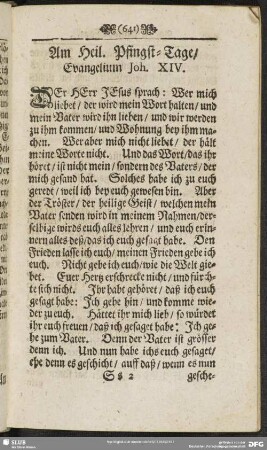 (641)
Am Heil. Pfingst-Tage/
Evangelium Joh. XIV.
DEr HErr JEsus sprach: Wer mich
liebet/ der wird mein Wort halten/ und
mein Vater wird ihn lieben/ und wir werden
zu ihm kommen/ und Wohnung bey ihm ma-
chen. Wer aber mich nicht liebet/ der hält
meine Worte nicht. Und das Wort/ das ihr
höret/ ist nicht mein/ sondern des Vaters/ der
mich gesand hat. Solches habe ich zu euch
geredt/ weil ich bey euch gewesen bin. Aber
der Tröster/ der heilige Geist/ welchen mein
Vater senden wird in meinem Nahmen/ der-
selbige wirds euch alles lehren/ und euch erin-
nern alles deß/ das ich euch gesagt habe. Den
Frieden lasse ich euch/ meinen Frieden gebe ich
euch. Nicht gebe ich euch/ wie die Welt gie-
bet. Euer Herz erschrecke nicht/ und fürch-
te sich nicht. Ihr habt gehöret/ daß ich euch
gesagt habe: Ich gehe hin/ und komme wie-
der zu euch. Hättet ihr mich lieb/ so würdet
ihr euch freuen/ daß ich gesaget habe: Ich ge-
he zum Vater. Denn der Vater ist grösser
denn ich. Und nun habe ichs euch gesaget/
ehe denn es geschicht/ auff daß/ wenn es nun
S s 2 gesche-
SLUB
DFG